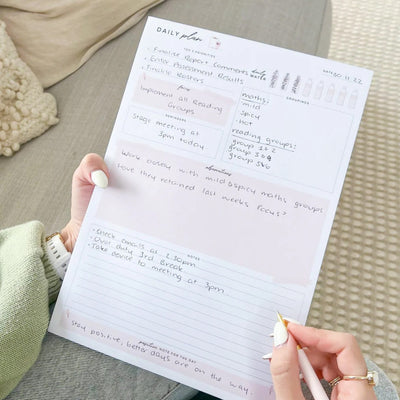 DAILY plan
TOP 3 PRIORITIES
• Finalise Report Comments
• Enter Assessment Results
• Finalise Rosters
daily WATER
DATE: 20.11.22
focus
Implement all Reading Groups
REMINDER
Stage meeting at 3pm today
GROUPINGS
maths:
mild
spicy
hot
reading groups:
group 1 & 2
group 3 & 4
group 5 & 6
Work closely with mild & spicy maths groups
have they retained last weeks focus?
NOTES
• Check emails at 2:30pm
• Oval duty 3rd Break
• Take device to meeting at 3pm
positive NOTE FOR THE DAY
stay positive, better days are on the way.